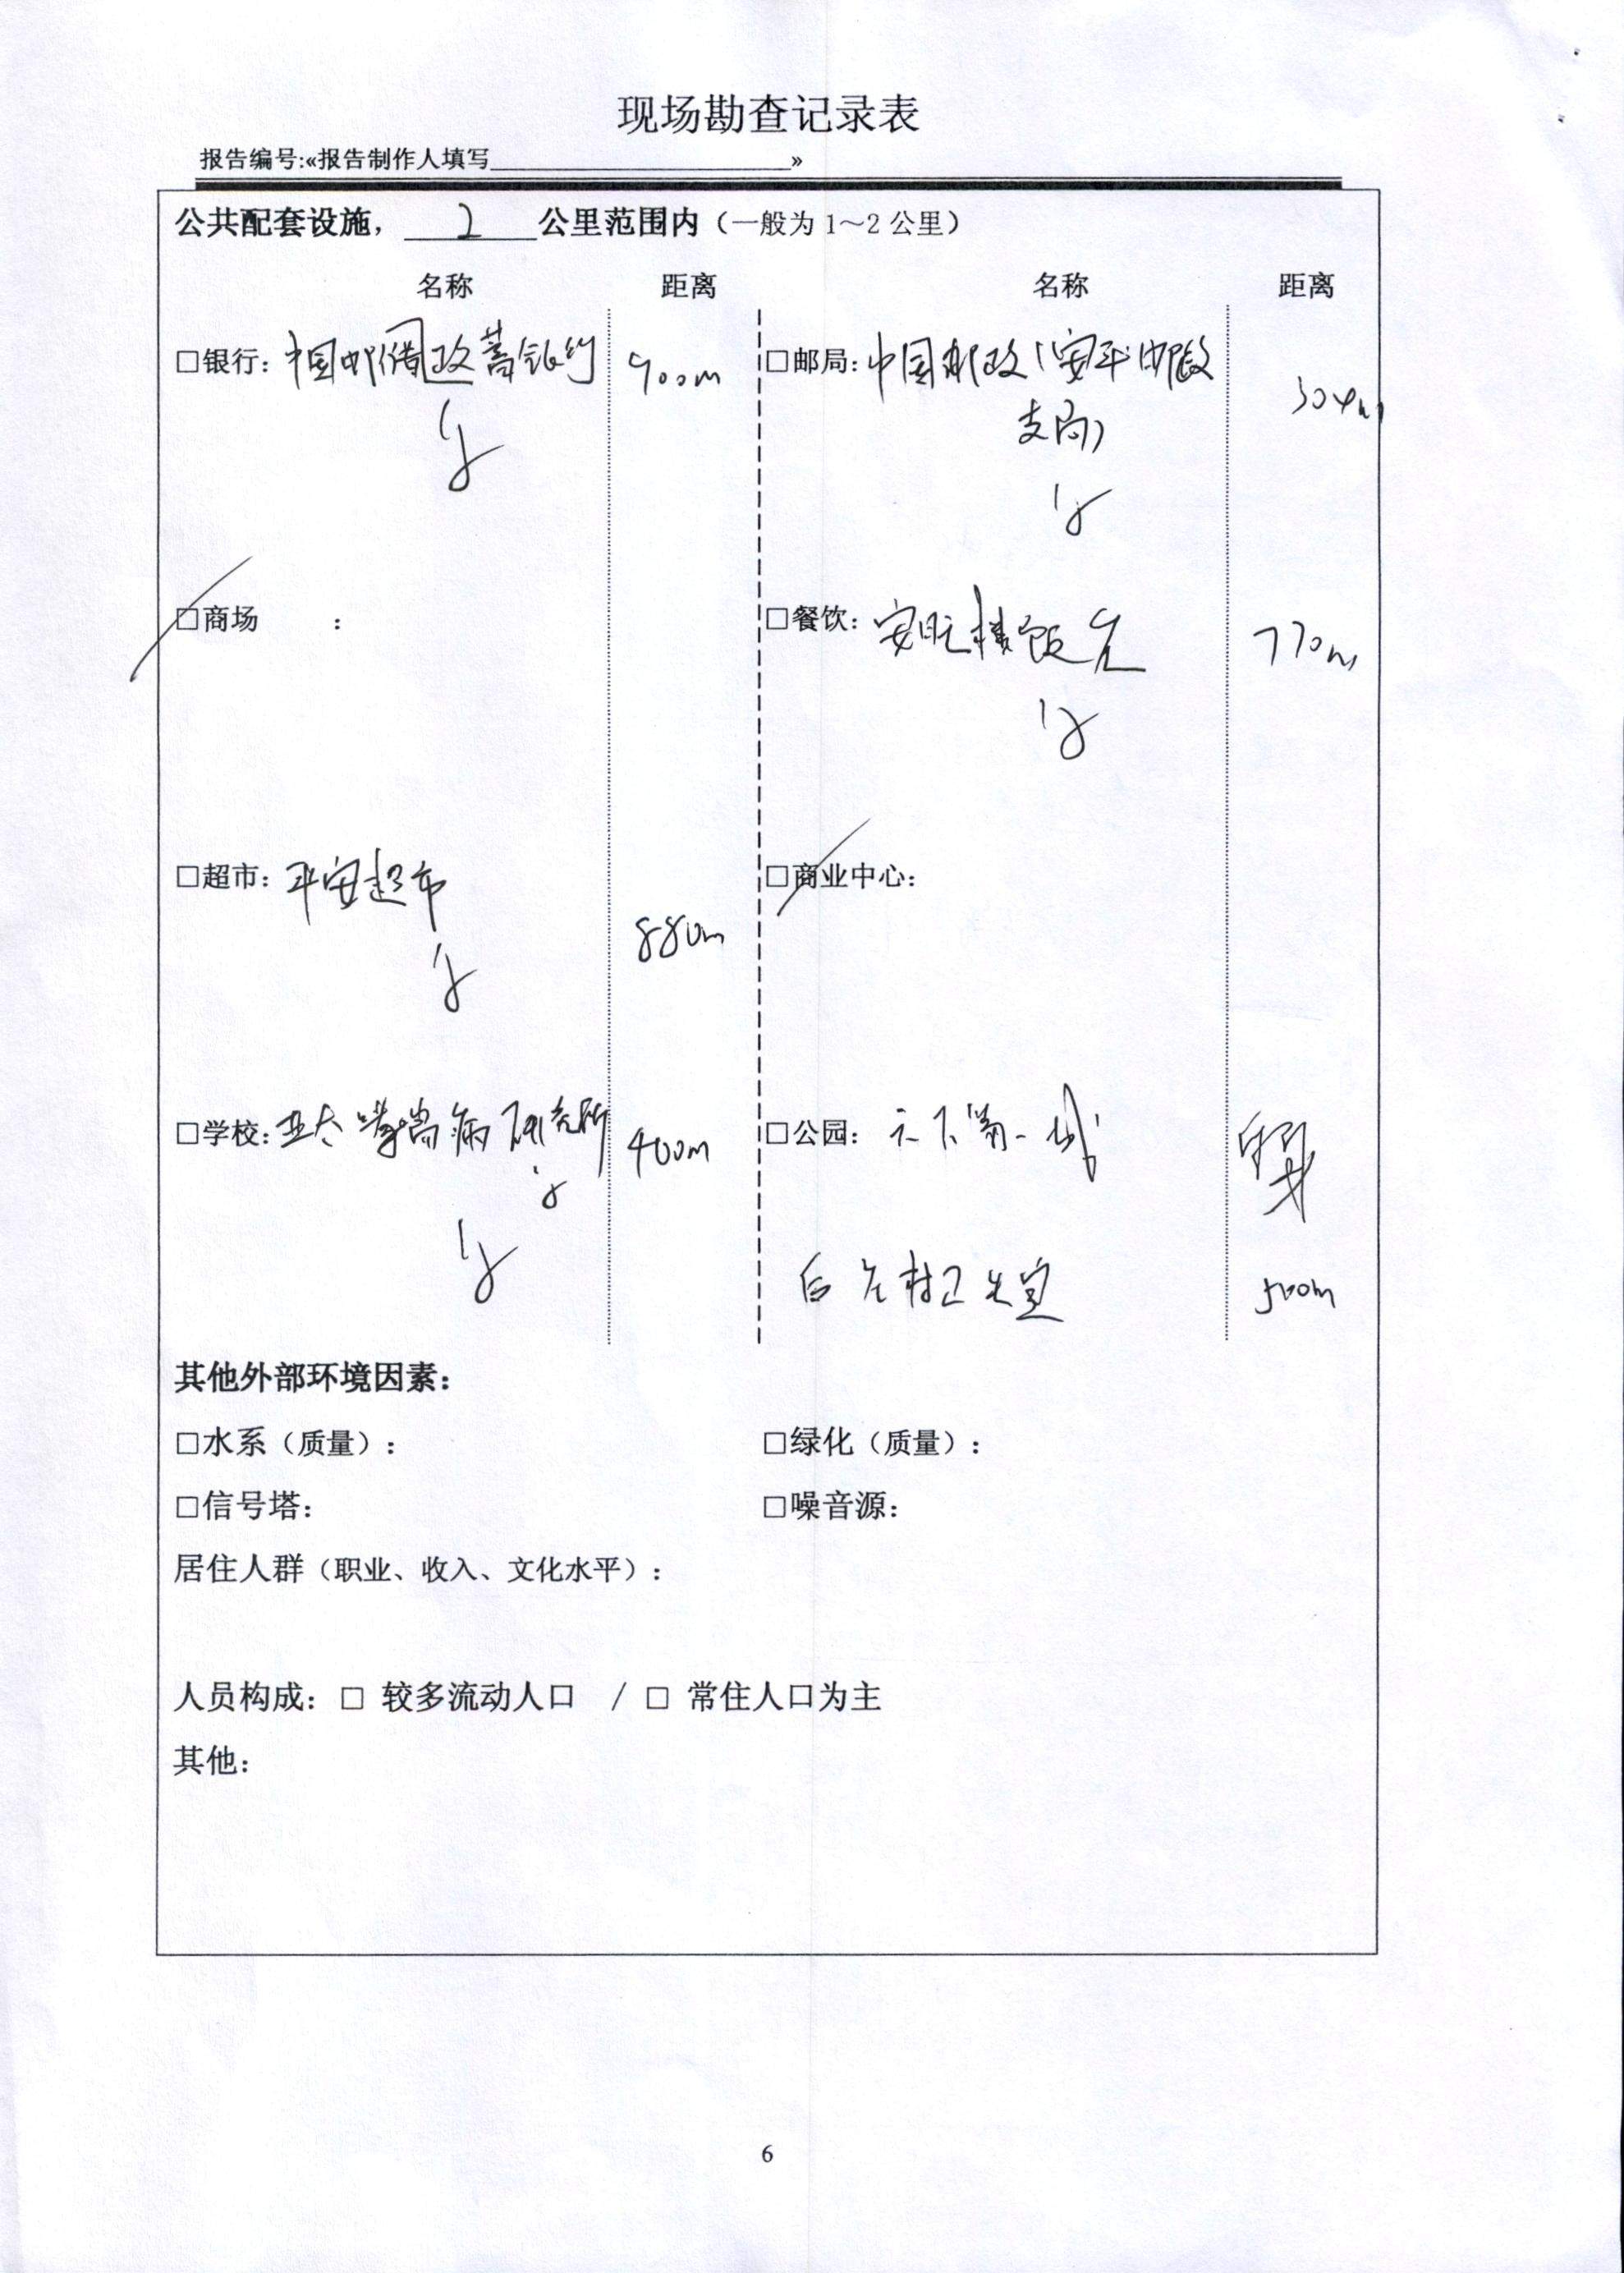 现场勘查记录表
报告编号:«报告制作人填写____________________»
公共配套设施，2 公里范围内（一般为 1～2 公里）
名称 距离 名称 距离
□银行：中国邮政储蓄银行 900m
□邮局：中国邮政（安平邮政
支局）
□商场 ：
□餐饮：安旺楼饭店 770m
□超市：平安超市 880m
□商业中心：
□学校：亚太 病研究所 400m
□公园：天下第一城
卫生室 500m
其他外部环境因素：
□水系（质量）：
□绿化（质量）：
□信号塔：
□噪音源：
居住人群（职业、收入、文化水平）：
人员构成：□ 较多流动人口 / □ 常住人口为主
其他：
6